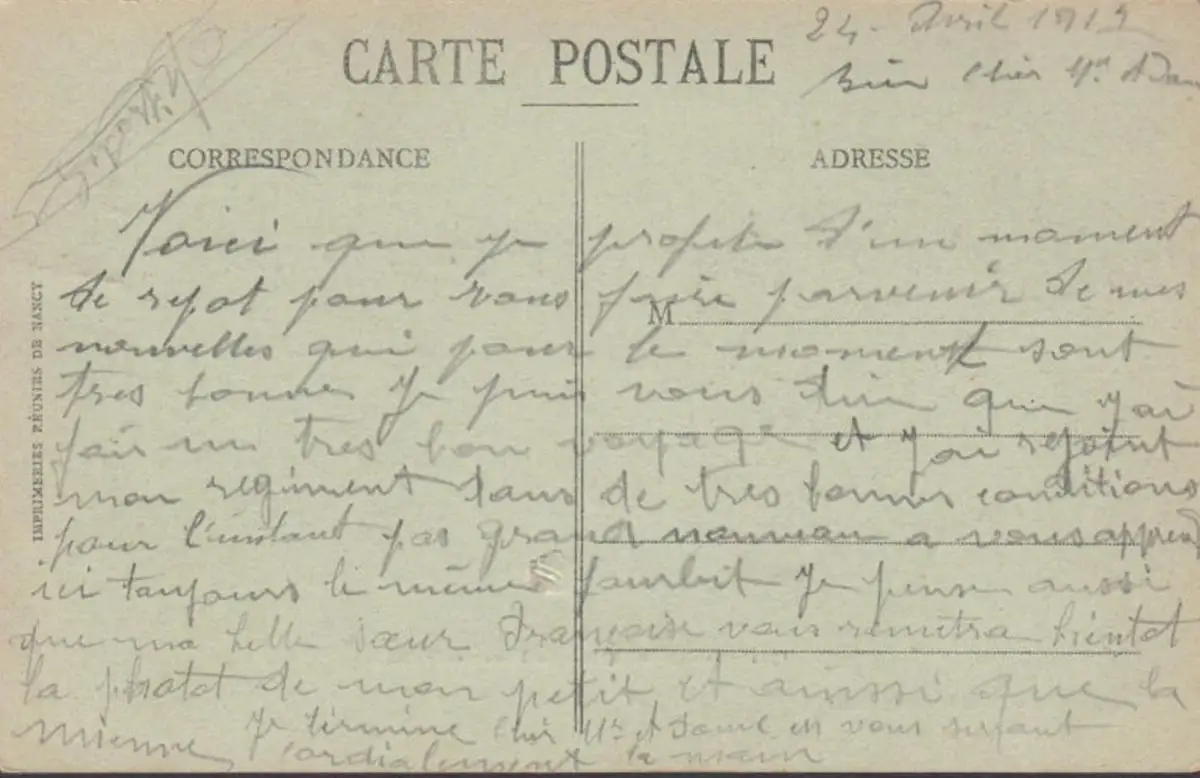 24 - Avril 191
CARTE POSTALE
bien cher Mr et Dame
CORRESPONDANCE
ADRESSE
Voici que je profite d'un moment
de repot pour vous faire parvenir de mes
M
nouvelles qui pour le moment sont
tres bonnes Je puis vous dire que j'ai
fais un tres bon voyage et j'ai rejoint
mon regiment dans de tres bonnes conditions
pour l'instant pas grand nouveau a vous apprend
ici toujours le même fourbit Je pense aussi
que ma belle sœur Françoise vous remetra bientot
la photot de mon petit et ainssi que la
mienne Je termine Cher Mr et Dame en vous serrant
Cordialement la main
IMPRIMERIES RÉUNIES DE NANCY